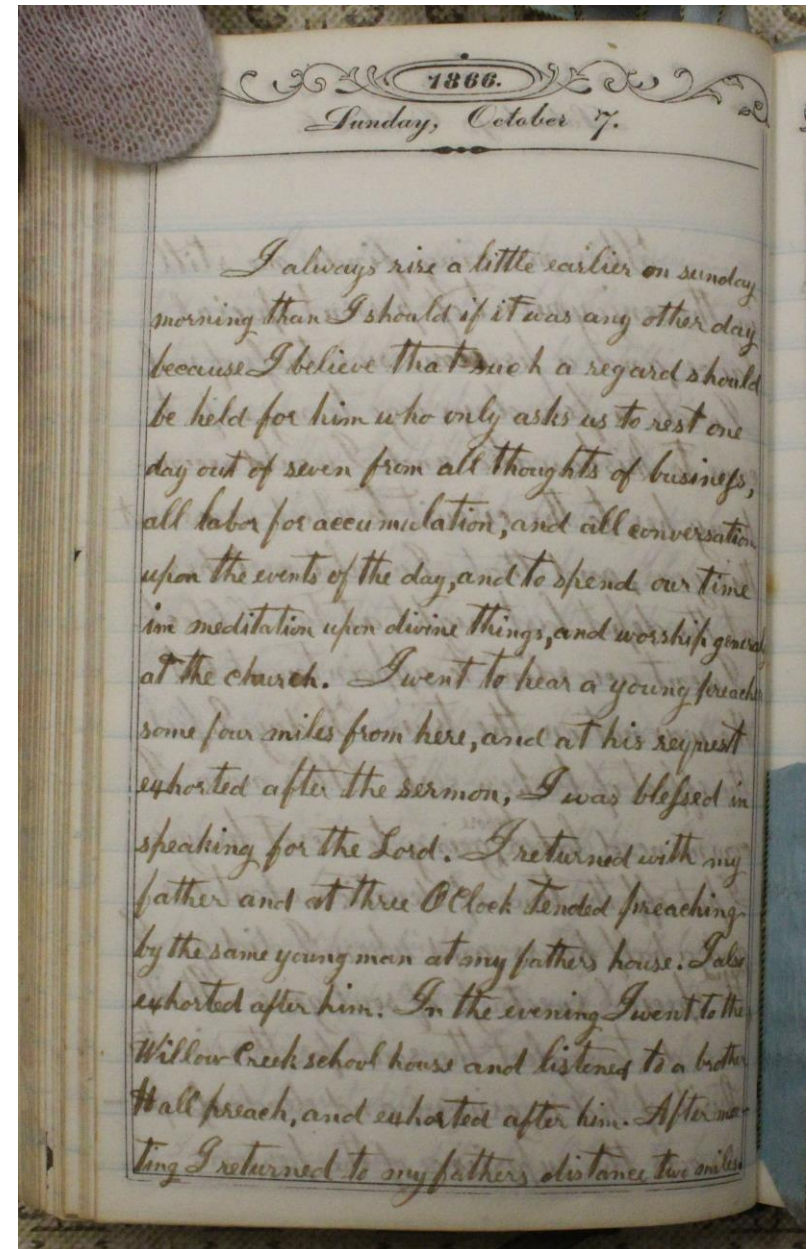 1866.
Sunday, October 7.
I always rise a little earlier on sunday
morning than I should if it was any other day
because I believe that such a regard should
be held for him who only asks us to rest one
day out of seven from all thoughts of business,
all labor for accumulation, and all conversation
upon the events of the day, and to spend our time
im meditation upon divine things, and worship general
at the church. I went to hear a young preacher
some four miles from here, and at his request
exhorted after the sermon, I was blessed in
speaking for the Lord. I returned with my
father and at three OClock tended preaching
by the same young man at my fathers house. I also
exhorted after him. In the evening I went to the
Willow Creek school house and listened to a brother
Hall preach, and exhorted after him. After mee-
ting I returned to my fathers distance two miles.